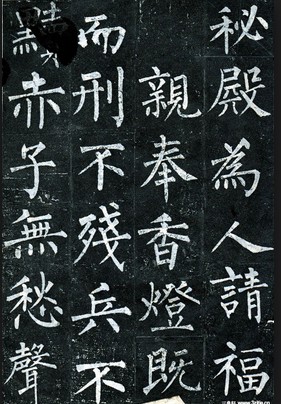 秘殿為人請福
親奉香燈既
而刑不殘兵不
黷赤子無愁聲